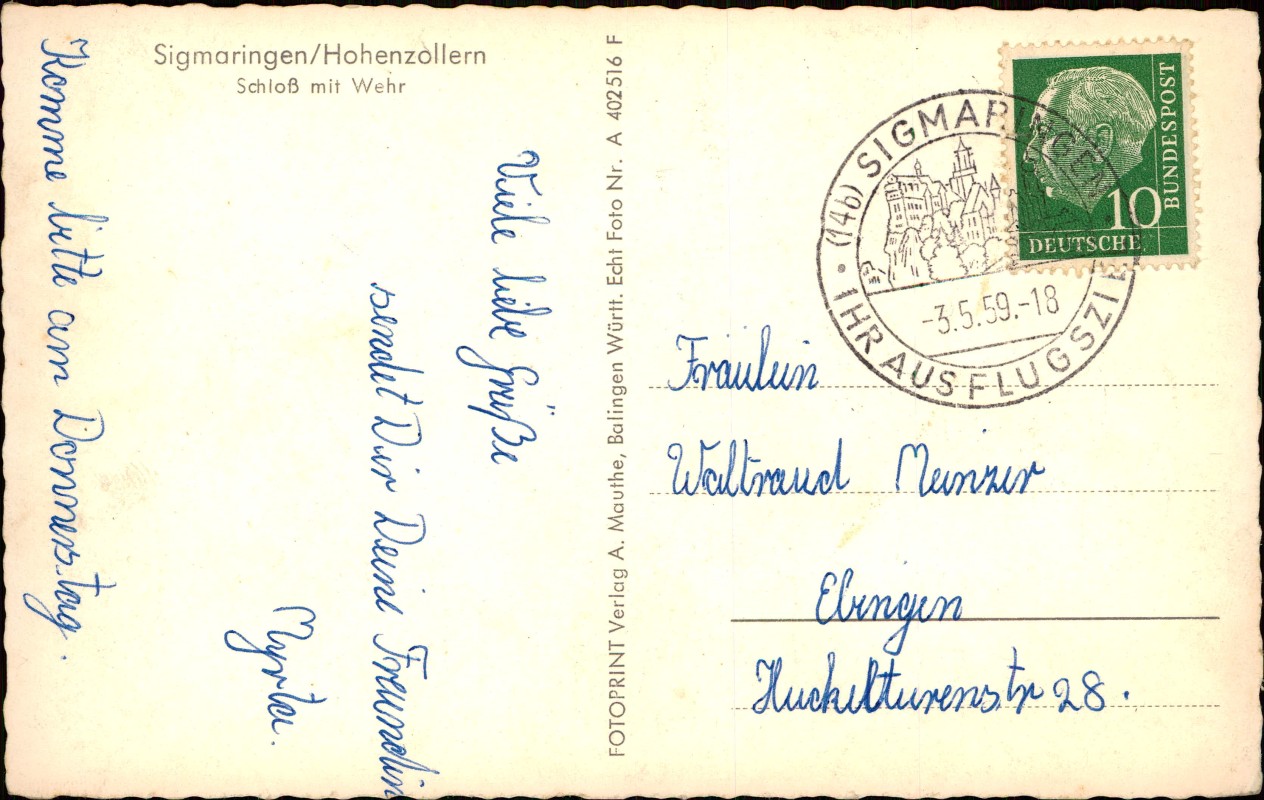 Sigmaringen/Hohenzollern
Schloß mit Wehr
Viele liebe Grüße
sendet Dir Deine Freundin
Myrta.
Komme bitte am Donnerstag.
FOTOPRINT Verlag A. Mauthe, Balingen Württ. Echt Foto Nr. A 402516 F
BUNDESPOST
10
DEUTSCHE
(14b) SIGMARINGEN
-3.5.59.-18
IHR AUSFLUGSZIEL
Fräulein
Waltraud Meinzer
Ebingen
28.